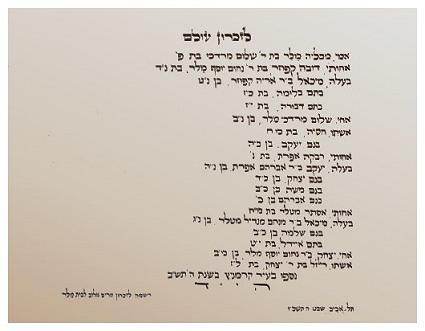 לזכרון עולם
אמי, מלכה מלר בת ר' שלום מרדכי בת פ'
אחותי, דובה קפהזר בת ר' נחום יוסף מלר, בת נ"ד
בעלה, מיכאל ב"ר אריה קפהזר, בן נ"ט
בתם בלומה, בת כ"ז
בתם דבורה, בת י"ז
אחי, שלום מרדכי מלר, בן נ"ב
אשתו, חסיה, בת מ"ח
בנם יעקב, בן י"ב
אחותי, רבקה אפרת, בת נ'
בעלה, יעקב ב"ר אברהם אפרת, בן נ"ה
בנם יצחק, בן כ"ד
בנם משה בן כ"ב
בנם אברהם בן כ'
אחותי אסתר מטלר בת מ"ח
בעלה, מיכאל ב"ר מנחם מנדיל מטלר, בן נ"ג
בנם שלמה בן כ"ב
בתם איידל, בת י"ט
אחי, יצחק, ב"ר נחום יוסף מלר, בן מ"ב
אשתו, רייזל בת ר' יצחק, בת ל"ז
נספו בעיר קרמניץ בשנת ה'תש"ב
ה' י' ד'
רשמה לזכרון מרים גולוב לבית מלר
תל-אביב שבט ה'תשכ"ז